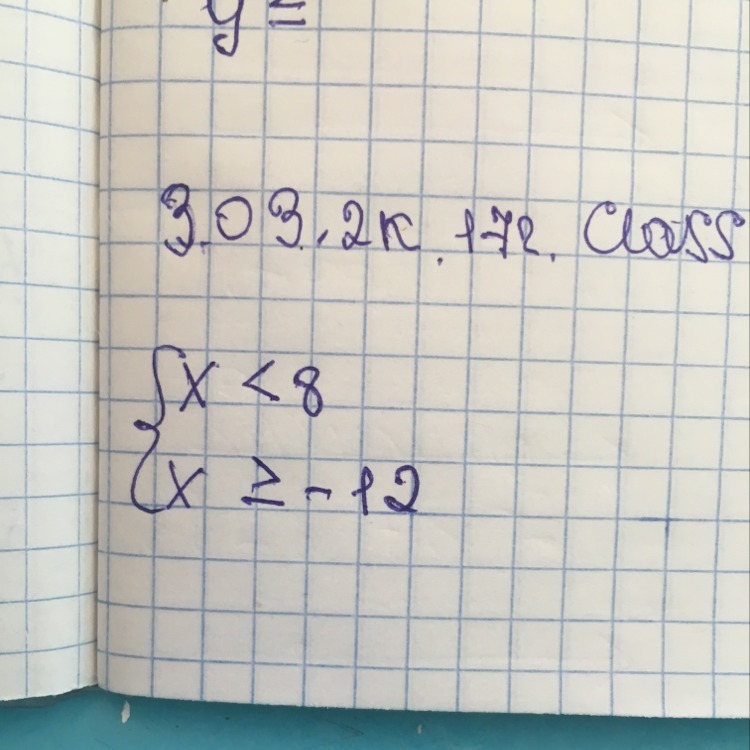 y =
3.03.2к.17г. Class
{x < 8
{x ≥ -12